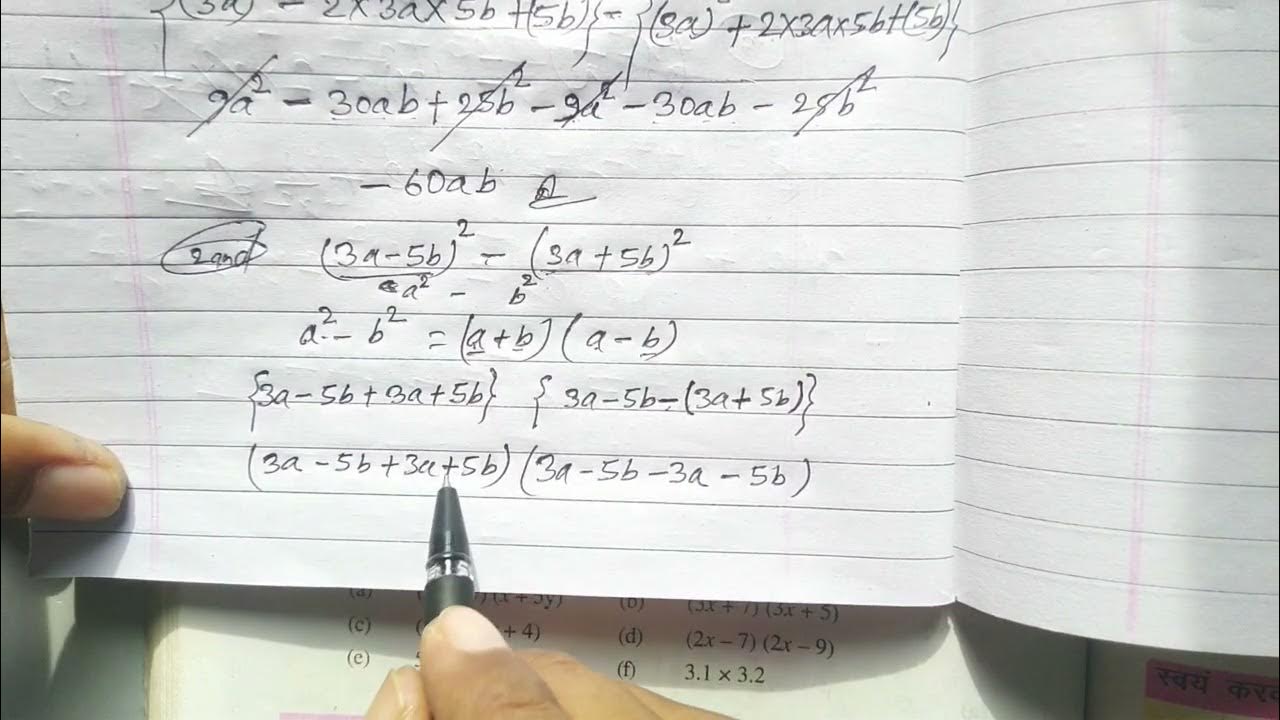 {(3a) - 2×3a×5b+(5b)} - {(3a) + 2×3a×5b+(5b)}
9a² - 30ab + 25b² - 9a² - 30ab - 25b²
- 60ab
2and (3a-5b)² - (3a+5b)²
a² - b²
a² - b² = (a+b) (a-b)
{3a-5b+3a+5b} {3a-5b-(3a+5b)}
(3a-5b+3a+5b) (3a-5b-3a-5b)
(a) (x + 5y) (b) (3x + 7) (3x + 5)
(c) + 4) (d) (2x – 7) (2x – 9)
(e) (f) 3.1 × 3.2
स्वयं